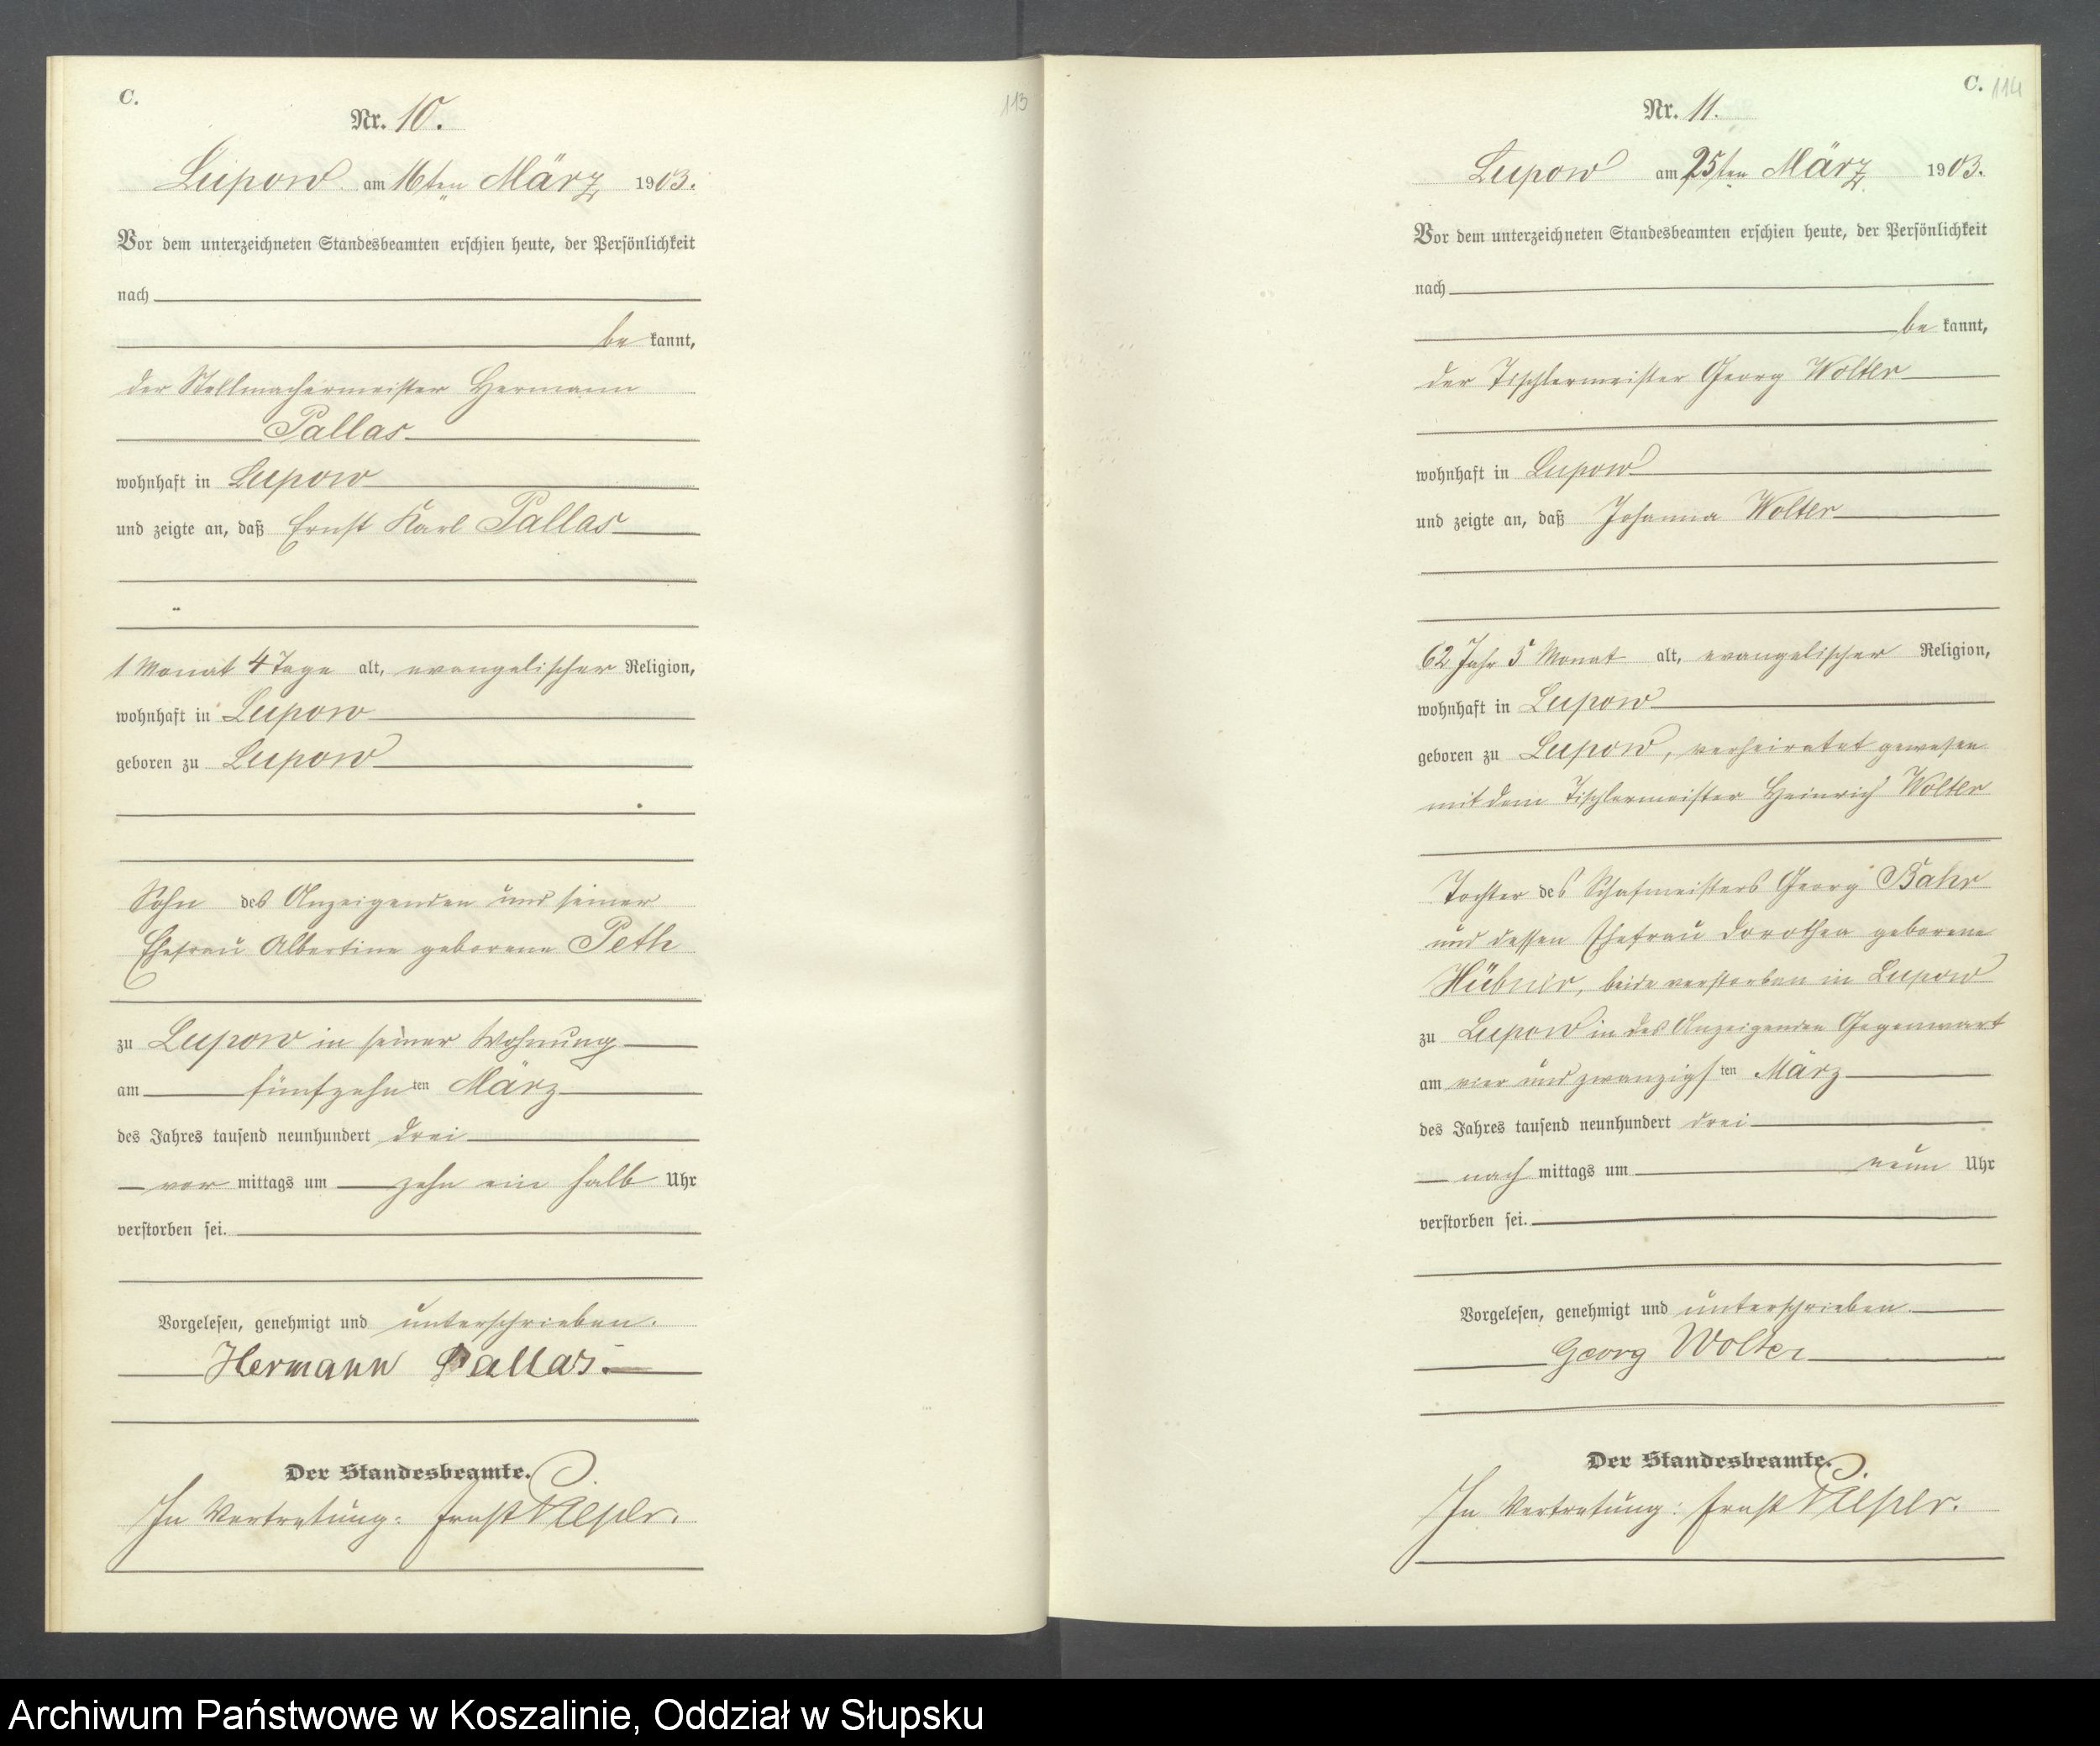 C.
113
Nr. 10.
Lupow am 16ten März 1903.
Vor dem unterzeichneten Standesbeamten erschien heute, der Persönlichkeit
nach
be kannt,
der Stellmachermeister Hermann
Pallas
wohnhaft in Lupow
und zeigte an, daß Ernst Karl Pallas
1 Monat 4 Tage alt, evangelischer Religion,
wohnhaft in Lupow
geboren zu Lupow
Sohn des Anzeigenden und seiner
Ehefrau Albertine geborene Peth
zu Lupow in seiner Wohnung
am fünfzehn ten März
des Jahres tausend neunhundert drei
vor mittags um zehn ein halb Uhr
verstorben sei.
Vorgelesen, genehmigt und unterschrieben.
Hermann Pallas.
Der Standesbeamte.
In Vertretung: Ernst Pieper.
C. 114
Nr. 11.
Lupow am 25ten März 1903.
Vor dem unterzeichneten Standesbeamten erschien heute, der Persönlichkeit
nach
be kannt,
der Tischlermeister Georg Wolter
wohnhaft in Lupow
und zeigte an, daß Johanna Wolter
62 Jahr 5 Monat alt, evangelischer Religion,
wohnhaft in Lupow
geboren zu Lupow, verheiratet gewesen
mit dem Tischlermeister Heinrich Wolter
Tochter des Schafmeisters Georg Bahr
und dessen Ehefrau Dorothea geborene
Hübner, beide verstorben in Lupow
zu Lupow in des Anzeigenden Gegenwart
am vier und zwanzigs ten März
des Jahres tausend neunhundert drei
nach mittags um neun Uhr
verstorben sei.
Vorgelesen, genehmigt und unterschrieben.
Georg Wolter
Der Standesbeamte.
In Vertretung: Ernst Pieper.
Archiwum Państwowe w Koszalinie, Oddział w Słupsku